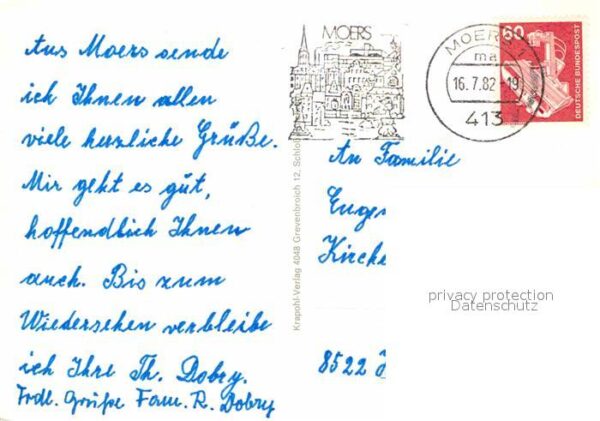 Aus Moers sende
ich Ihnen allen
viele herzliche Grüße.
Mir geht es gut,
hoffendlich Ihnen
auch. Bis zum
Wiedersehen verbleibe
ich Ihre Th. Dobry.
Frdl. Grüße Fam. R. Dobry
Krapohl-Verlag 4048 Grevenbroich 12, Schloß
MOERS
MOERS 1
ma
16.7.82-19
413
60
DEUTSCHE BUNDESPOST
An Familie
Eugen
Kirche
8522
privacy protection
Datenschutz